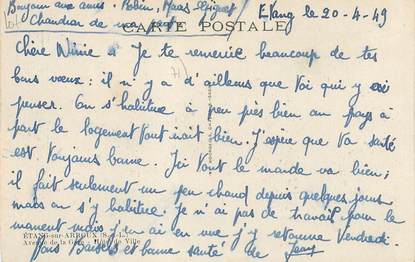 Bonjour aux amis : Robin, Maas
Chandian de ma part
Etang le 20-4-49
CARTE POSTALE
Chère Ninie. Je te remercie beaucoup de tes
bons vœux : il n'y a d'ailleurs que toi qui y ai
penser. On s'habitue à peu près bien au pays à
part le logement tout irait bien. J'espère que ta santé
est toujours bonne. Ici tout le monde va bien ;
il fait seulement un peu chaud depuis quelques jours
mais on s'y habitue. Je n'ai pas de travail pour le
moment mais j'en ai en vue j'y retourne Vendredi.
ÉTANG-sur-ARROUX (S.-&-L.)
Avenue de la Gare - Hôtel de Ville
Gros Baisers et bonne santé de Jean